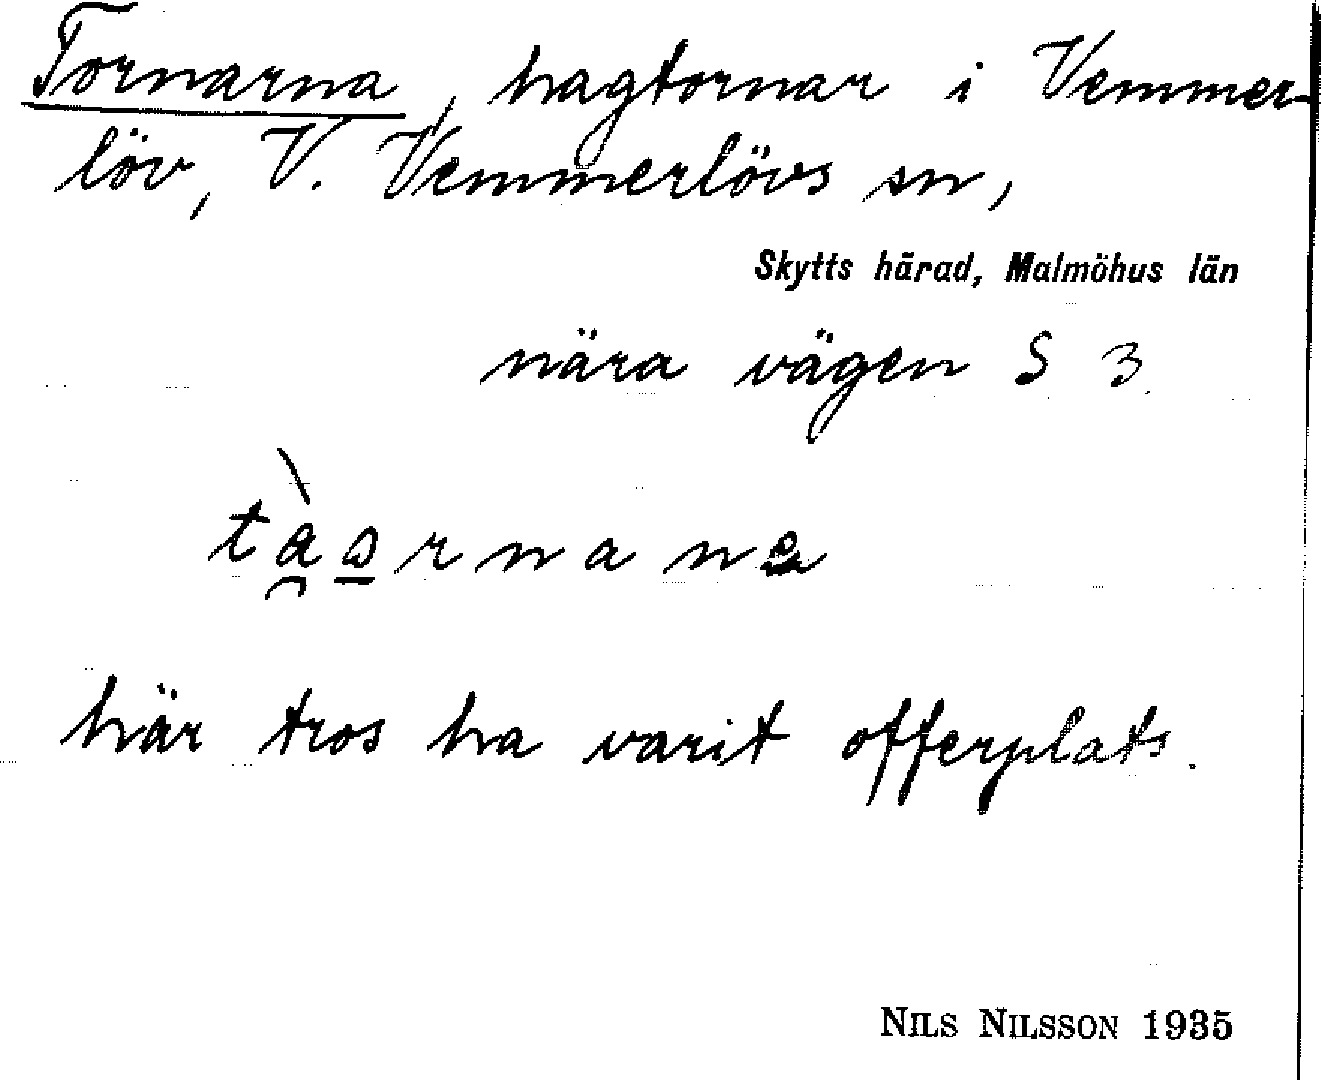 Tornarna, hagtornar i Vemmer-
löv, V. Vemmerlövs sn,
Skytts härad, Malmöhus län
nära vägen S 3.
här tros ha varit offerplats.
NILS NILSSON 1935